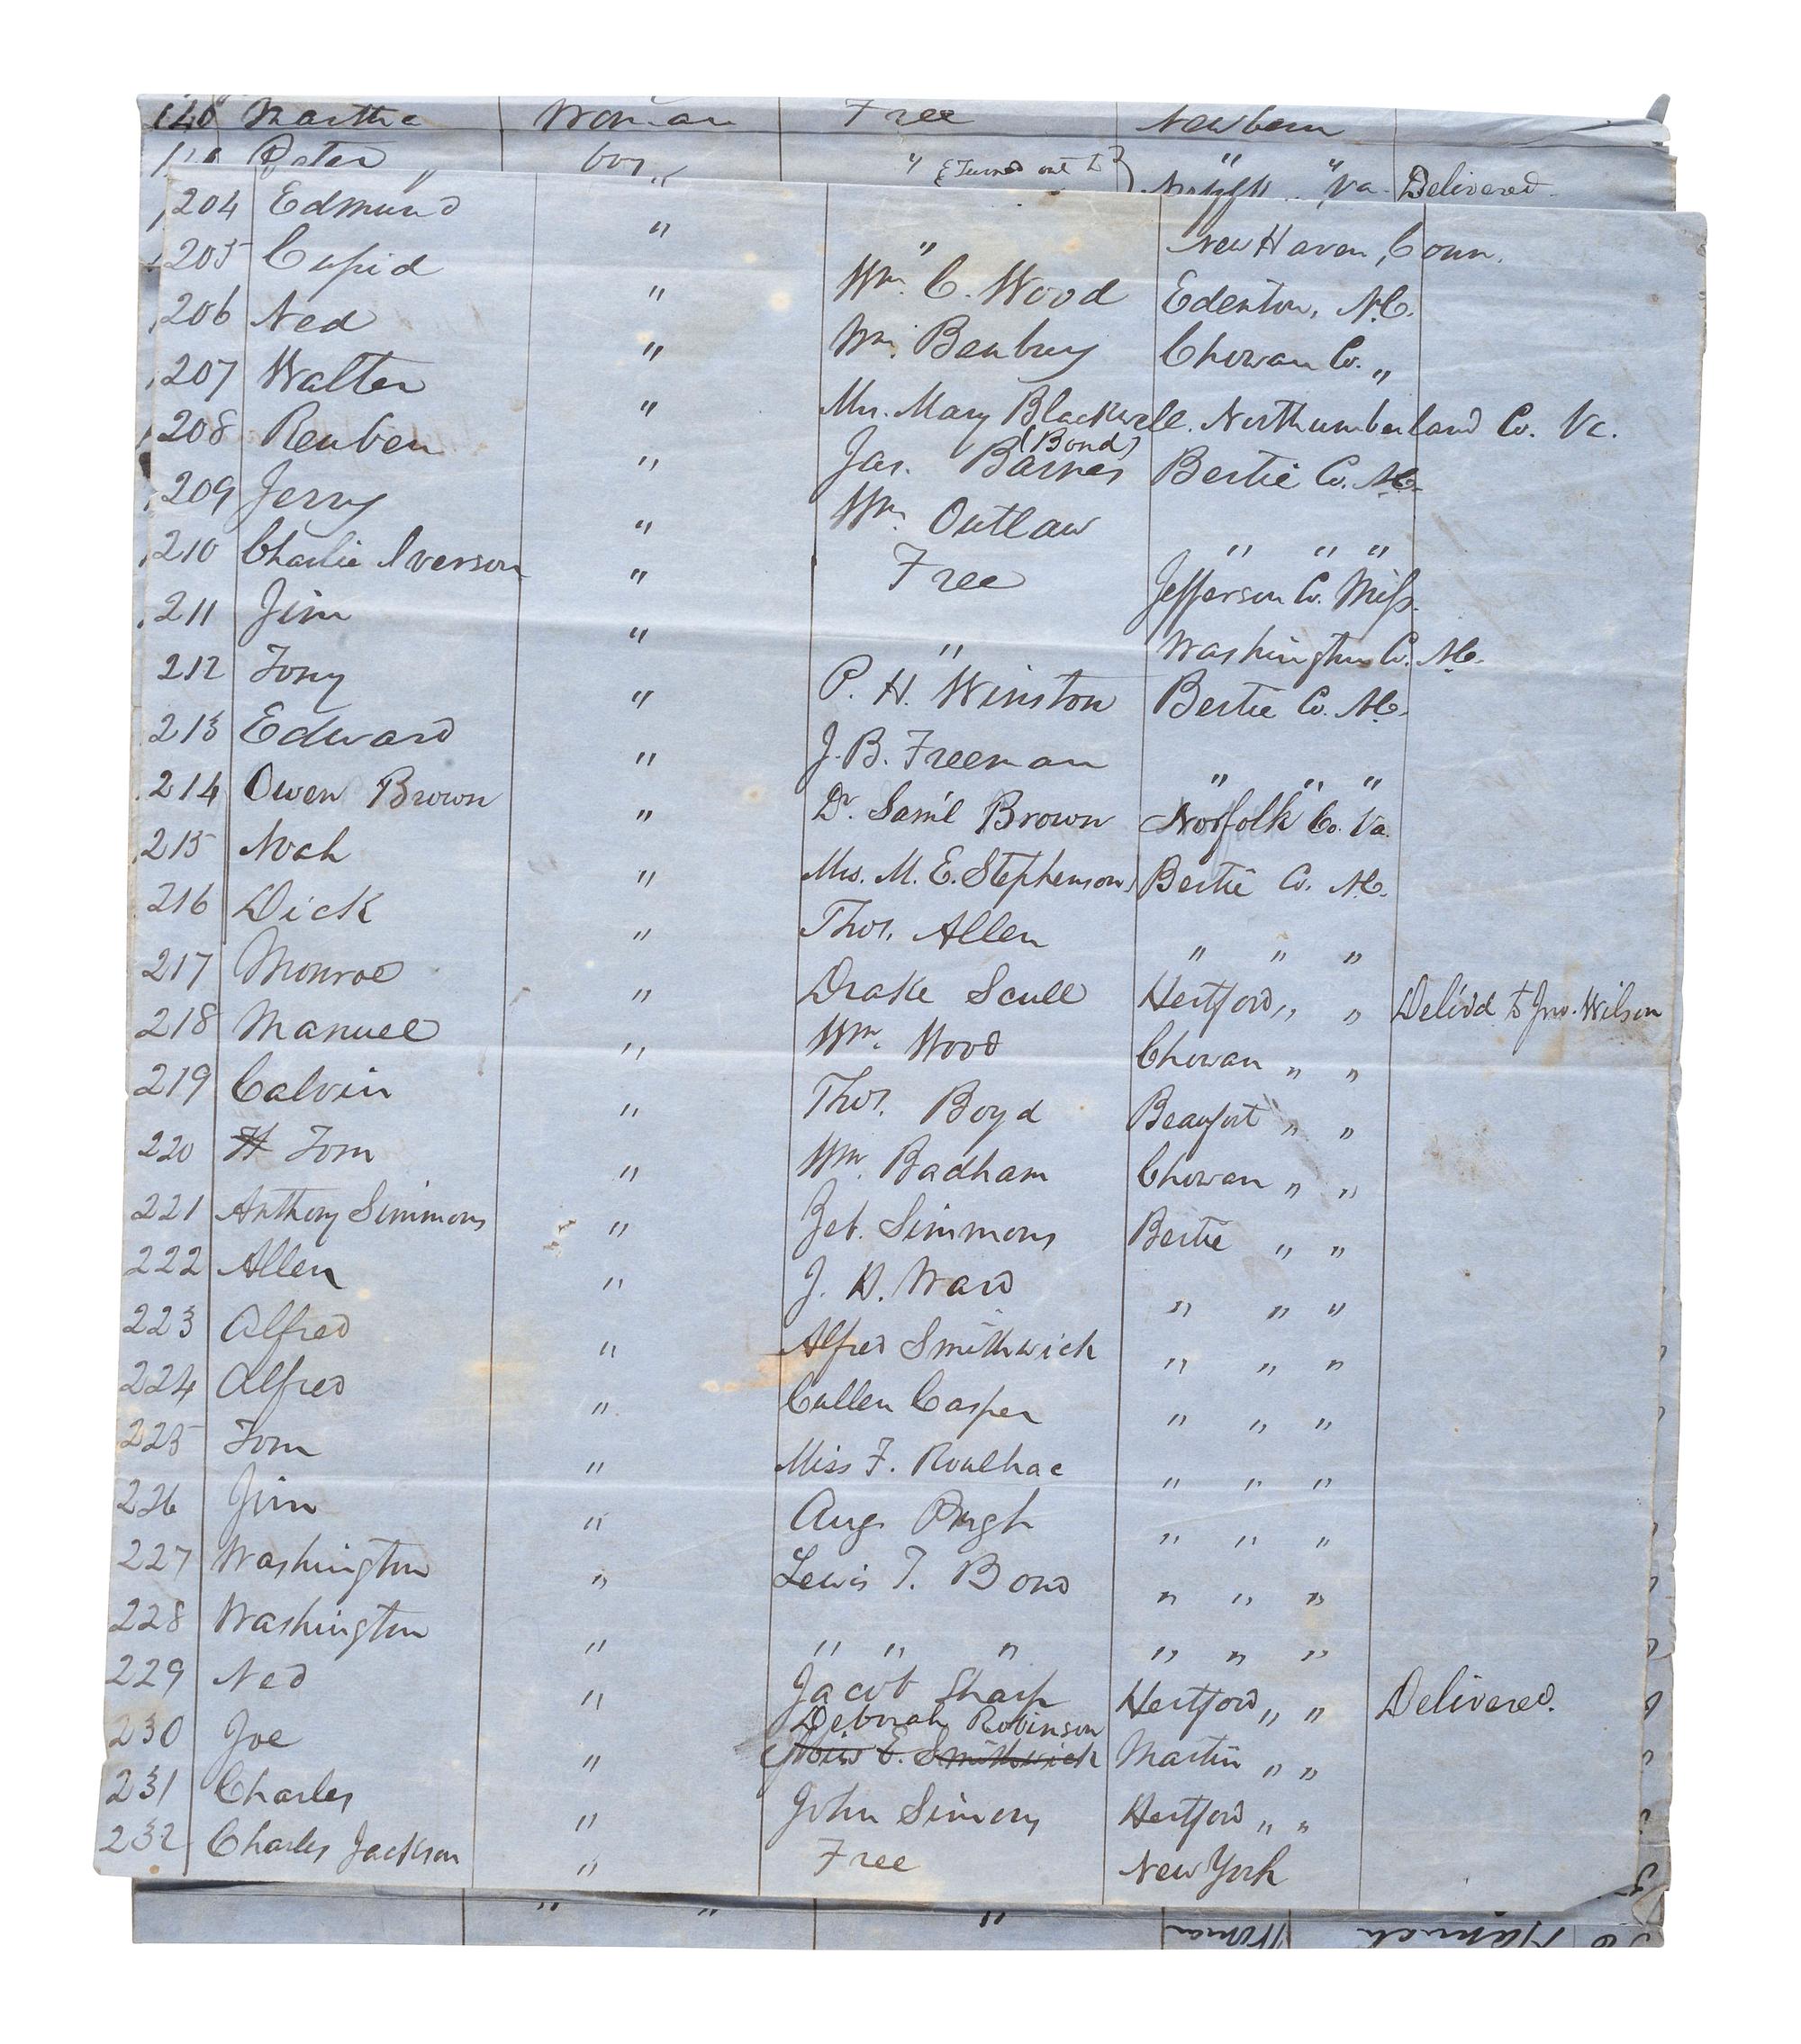 140 Martha Woman Free Newbern
Peter boy " {Turned out to} " "
" " Norfolk " Va. Delivered
204 Edmund " " New Haven, Conn.
205 Cupid " Wm. C. Wood Edenton, N.C.
206 Ned " Wm. Benbury Chowan Co. "
207 Walter " Mrs. Mary Blackwell. Northumberland Co. Va.
208 Reuben " Jas. Barnes (Bond) Bertie Co. N.C.
209 Jerry " Wm. Outlaw " " "
210 Charlie Iverson " Free Jefferson Co. Miss.
211 Jim " " Washington Co. N.C.
212 Tony " P. H. Winston Bertie Co. N.C.
213 Edward " J. B. Freeman " " "
214 Owen Brown " Dr. Sam'l Brown Norfolk Co. Va.
215 Noah " Mrs. M. E. Stephenson Bertie Co. N.C.
216 Dick " Thos. Allen " " "
217 Monroe " Drake Scull Hertford " " Deliv'd to Jno. Wilson
218 Manuel " Wm. Wood Chowan " "
219 Calvin " Thos. Boyd Beaufort " "
220 H Tom " Wm. Badham Chowan " "
221 Anthony Simmons " Zeb. Simmons Bertie " "
222 Allen " J. H. Ward " " "
223 Alfred " Alfred Smithwick " " "
224 Alfred " Cullen Casper " " "
225 Tom " Miss F. Roulhac " " "
226 Jim " Aug. Pugh " " "
227 Washington " Lewis T. Bond " " "
228 Washington " " " " " " "
229 Ned " Jacob Sharp Hertford " " Delivered.
Deborah Robinson
230 Joe " E. Smithwick Martin " "
231 Charles " John Simons Hertford " "
232 Charles Jackson " Free New York
" " "
Woman Hannah